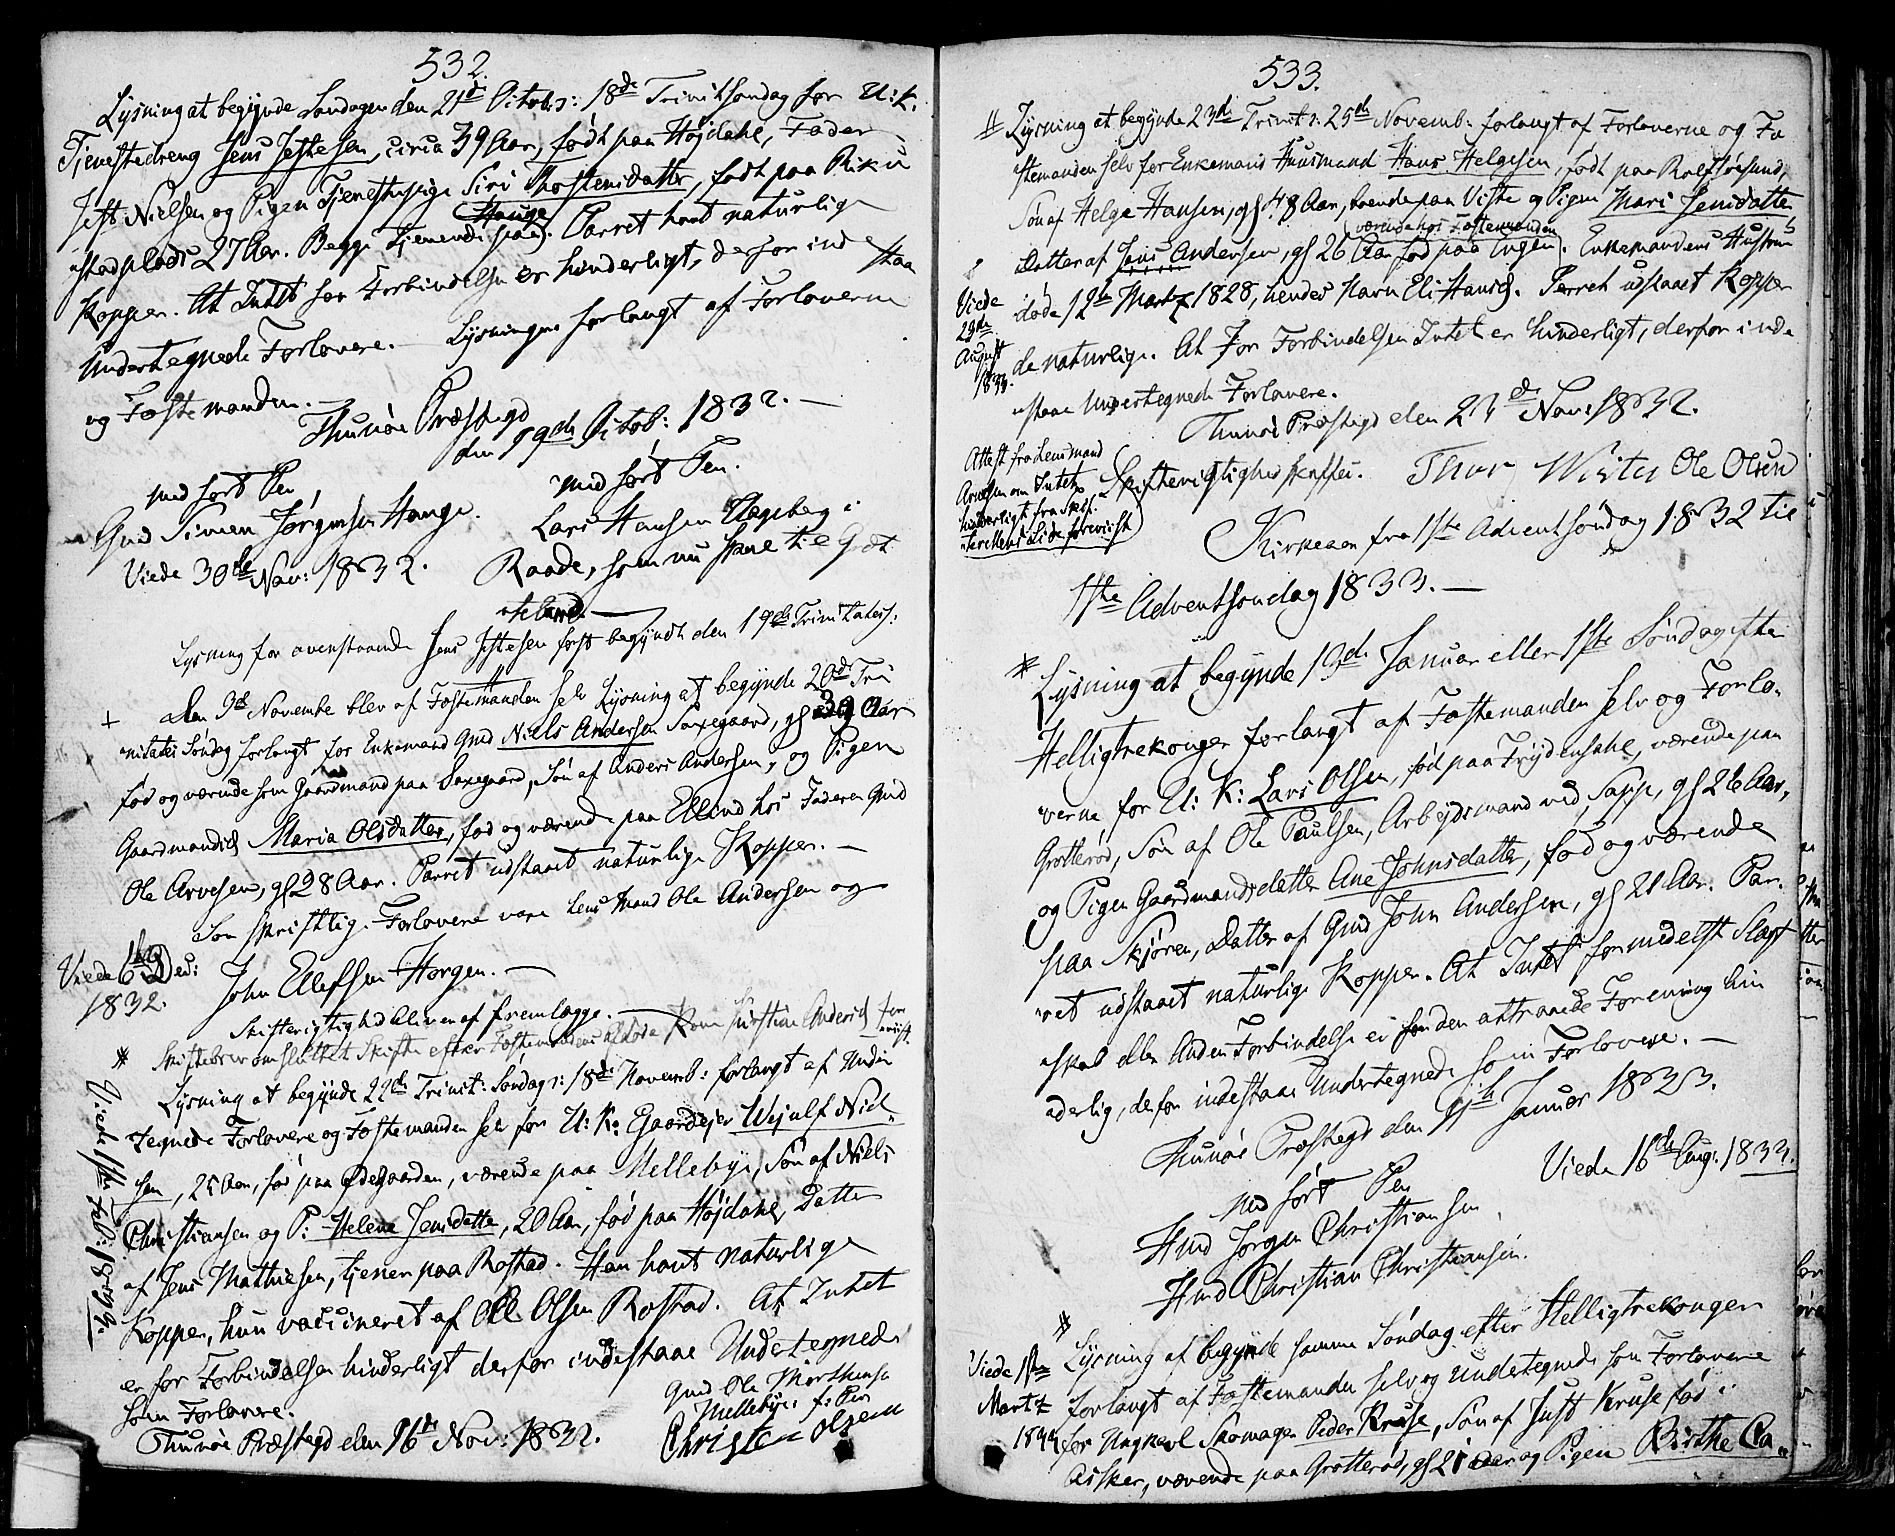 532.
Lysning at begynde Søndagen den 21de Octob: 18de Trinitsøndag for U: K.
Tjenestedreng Jens Jestesen, circa 39 Aar, født paa Højdahl, Fader
Jest Nielsen og Pigen Tjenestepige Siri Thostensdatter, født paa
stadplads 27 Aar. Begge tjenende paa Hauge. Parret havt naturlige
Kopper. At Intet for Forbindelsen er hinderligt, derfor indestaa
Undertegnede Forlovere. Lysningen forlangt af Forloverne
og Fæstemanden. —
Thunøe Præstegd
den 19de Octob: 1832. —
med ført Pen
med ført Pen.
Gmd Simen Jørgensen Hauge.
Lars Hansen Hageberg i
Viede 30de Nov: 1832.
Raade, som nu
Lysning for ovenstaaende Jens Jestesen først begyndt den 19de Trinitatis:
+ Den 9de Novembe blev af Fæstemanden selv Lysning at begynde 20de Tri
nitatis Søndag forlangt for Enkemand Gmd Niels Andersen Saxegaard, gl 39 Aar
fød og værende som Gaardmand paa Saxegaard, Søn af Anders Andersen, og Pigen
Gaardmandsd Maria Olsdatter, fød og værende paa Ellund hos Faderen Gmd
Ole Arvesen, gl 28 Aar. Parret udstaaet naturlige Kopper. —
Som skriftlig Forlovere vare Lensmand Ole Andersen og
Viede 6te Dec:
1832.
John Ellefsen Horgen. —
Skifterigtighd bliver at fremlægge. —
* Skiftebrev om sluttet Skifte efter Fæstemandens afdøde Kone Kirstine Andersd fore
viist.
Lysning at begynde 22de Trinit: Søndag: 18de Novemb: forlangt af Under
tegnede Forlovere og Fæstemanden selv for U: K: Gaardejer Wejulf Niel
sen, 25 Aar, fød paa Ødegaarden, værende paa Mellebye, Søn af Niels
Christiansen og P: Helene Jensdatter, 20 Aar, fød paa Højdahl, Datter
af Jens Mathiesen, tjener paa Rostad. Han havt naturlige
Kopper, hun vaccineret af Ole Olsen Rostad. At Intet
er for Forbindelsen hinderligt derfor indestaae Undertegnede
som Forlovere.
Gmd Ole Mortensen
Mellebye: f: Pen
Thunøe Præstegd den 16de Nov: 1832.
Christen Olsen
Viede 1ste Feb: 1834.
533.
# Lysning at begynde 23de Trinit: 25de Novemb: forlangt af Forloverne og Fæ
stemanden selv for Enkemand Huusmand Hans Helgesen, født paa Rolfsøesund,
Søn af Helge Hansen, gl 48 Aar, boende paa Viste og Pigen Mari Jensdatter
værende hos Fæstemanden
Datter af Jens Andersen, gl 26 Aar fød paa Engen. Enkemandens Hustrue
døde 12te Martz 1828, hendes Navn Eli Hansd. Parret udstaaet Kopper
de naturlige. At for Forbindelsen Intet er hinderligt, derfor inde
staae Undertegnede Forlovere.
Viede
29de
August
1833.
Thunøe Præstegd den 23de Nov: 1832.
Attest fra Lensmand
Arvesen om Intet
hinderligt fra Skif-
terettens Side foreviist
Skifterigtighd skaffes. Thor Wister Ole Olsen
Kirkeaar fra 1ste Adventsøndag 1832 til
1ste Adventsøndag 1833. —
* Lysning at begynde 13de Januar eller 1ste Søndag efter
Helligtrekonger forlangt af Fæstemanden selv og Forlo-
verne for U: K: Lars Olsen, fød paa Frydensahl, værende paa
Grotterød, Søn af Ole Paulsen, Arbejdsmand ved Sapp, gl 26 Aar,
og Pigen Gaardmandsdatter Ane Johnsdatter, fød og værende
paa Skjøren, Datter af Gmd John Andersen, gl 21 Aar. Par-
ret udstaaet naturlige Kopper. At Intet formedelst Slægt
skab eller Anden Forbindelse er for den attraaede Forening hin
derlig, derfor indestaae Undertegnede som Forlovere. —
Thunøe Præstegd den 11te Januar 1833.
med ført Pen
Viede 16de Aug: 1833.
Hmd Jørgen Christiansen,
Hmd Christian Christiansen.
# Lysning at begynde samme Søndag efter Helligtrekonger
forlangt af Fæstemanden selv og undertegnede som Forlovere
for Ungkarl Skomager Peder Kruse, Søn af Just Kruse fød i
Asker, værende paa Grotterød, gl 21 Aar og Pigen Birthe Ca-
Viede 1ste
Martz
1844